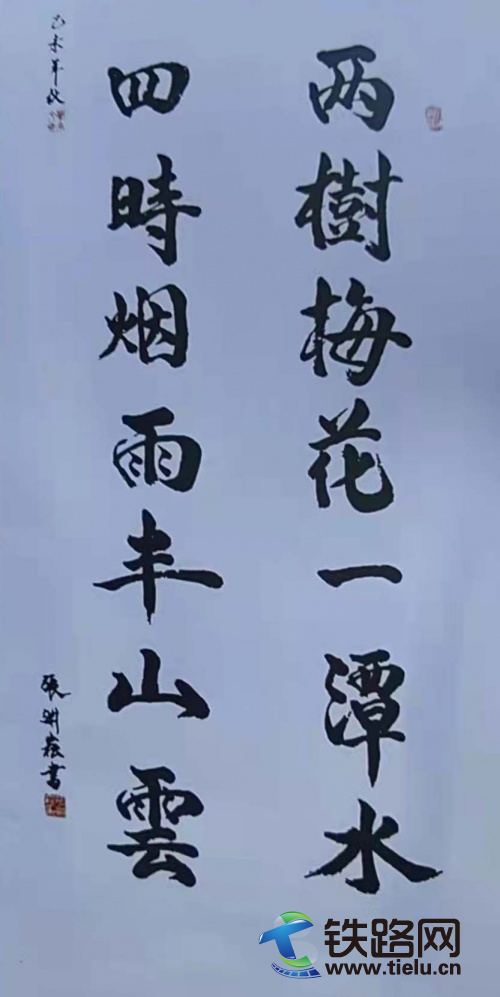 两樹梅花一潭水
四時烟雨半山雲
未年秋
張書
铁路网
www.tielu.cn